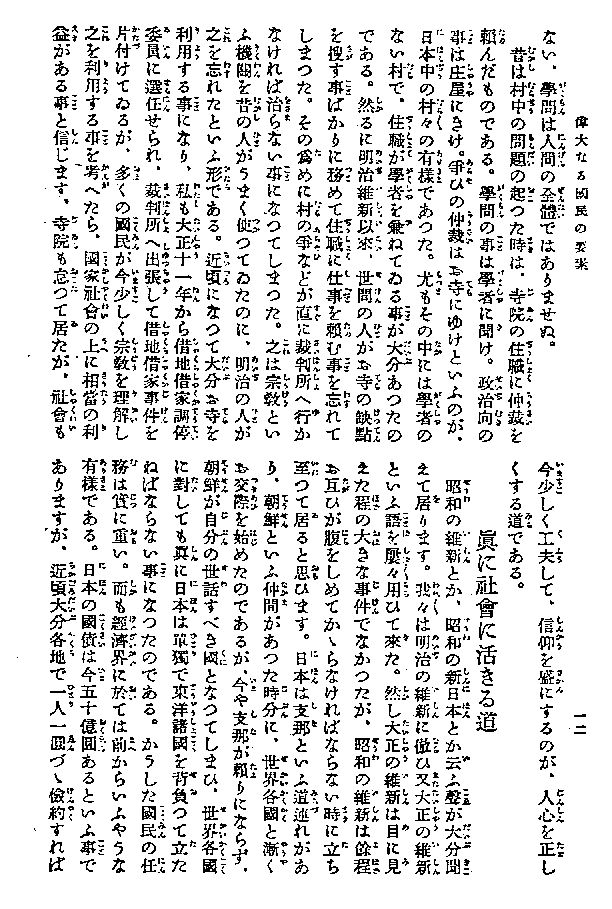 偉大なる國民の要求
一二
ない、學問は人間の全體ではありませぬ。
昔は村中の問題の起つた時は、寺院の住職に仲裁を
頼んだものである。學問の事は學者に聞け。政治向の
事は庄屋にきけ。爭ひの仲裁はお寺にゆけといふのが、
日本中の村々の有樣であつた。尤もその中には學者の
ない村で、住職が學者を兼ねてゐる事が大分あつたの
である。然るに明治維新以來、世間の人がお寺の缺點
を捜す事ばかりに務めて住職に仕事を頼む事を忘れて
しまつた。その爲めに村の爭などが直に裁判所へ行か
なければ治らない事になつてしまつた。之は宗教とい
ふ機關を昔の人がうまく使つてゐたのに、明治の人が
之を忘れたといふ形である。近頃になつて大分お寺を
利用する事になり、私も大正十一年から借地借家調停
委員に選任せられ、裁判所へ出張して借地借家事件を
片付けてゐるが、多くの國民が今少しく宗教を理解し
之を利用する事を考へたら、國家社會の上に相當の利
益がある事と信じます。寺院も怠つて居たが、社會も
今少しく工夫して、信仰を盛にするのが、人心を正し
くする道である。
眞に社會に活きる道
昭和の維新とか、昭和の新日本とか云ふ聲が大分聞
えて居ります。我々は明治の維新に倣ひ又大正の維新
といふ語を屢々用ひて來た。然し大正の維新は目に見
えた程の大きな事件でなかつたが、昭和の維新は餘程
お互ひが腹をしめてかゝらなければならない時に立ち
至つて居ると思ひます。日本は支那といふ道連れがあ
り、朝鮮といふ仲間があつた時分に、世界各國と漸く
お交際を始めたのであるが、今や支那が頼りにならず、
朝鮮が自分の世話すべき國となつてしまひ、世界各國
に對しても眞に日本は單獨で東洋諸國を背負つて立た
ねばならない事になつたのである。かうした國民の任
務は實に重い。而も經濟界に於ては前からいふやうな
有樣である。日本の國債は今五十億圓あるといふ事で
ありますが、近頃大分各地で一人一圓づゝ儉約すれば